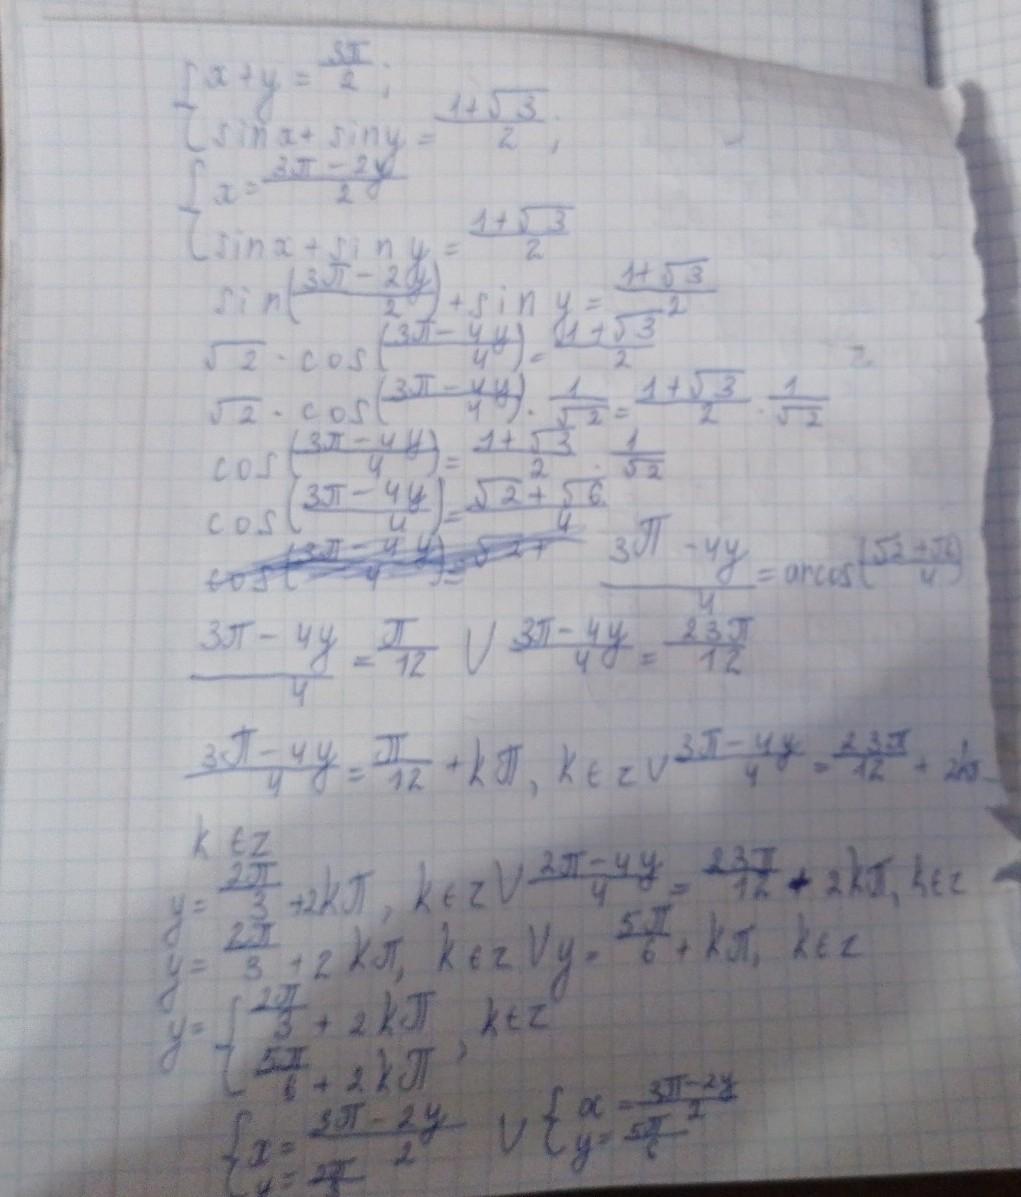 {x+y = 3π/2;
{sinx + siny = (1+√3)/2;
{x = (3π-2y)/2
{sinx + siny = (1+√3)/2
sin((3π-2y)/2) + siny = (1+√3)/2
√2 · cos((3π-4y)/4) = (1+√3)/2
√2 · cos((3π-4y)/4) · 1/√2 = (1+√3)/2 · 1/√2
cos((3π-4y)/4) = (1+√3)/2 · 1/√2
cos((3π-4y)/4) = (√2+√6)/4
(3π-4y)/4 = arcos((√2+√6)/4)
(3π-4y)/4 = π/12 V (3π-4y)/4 = 23π/12
(3π-4y)/4 = π/12 + kπ, k∈z V (3π-4y)/4 = 23π/12 +
k∈z
y = 2π/3 + 2kπ, k∈z V (2π-4y)/4 = 23π/12 + 2kπ, k∈z
y = 2π/3 + 2kπ, k∈z V y = 5π/6 + kπ, k∈z
y = {2π/3 + 2kπ, k∈z
{5π/6 + 2kπ
{x = (3π-2y)/2 V {x = (3π-2y)/2
{y = 2π/3 {y = 5π/6